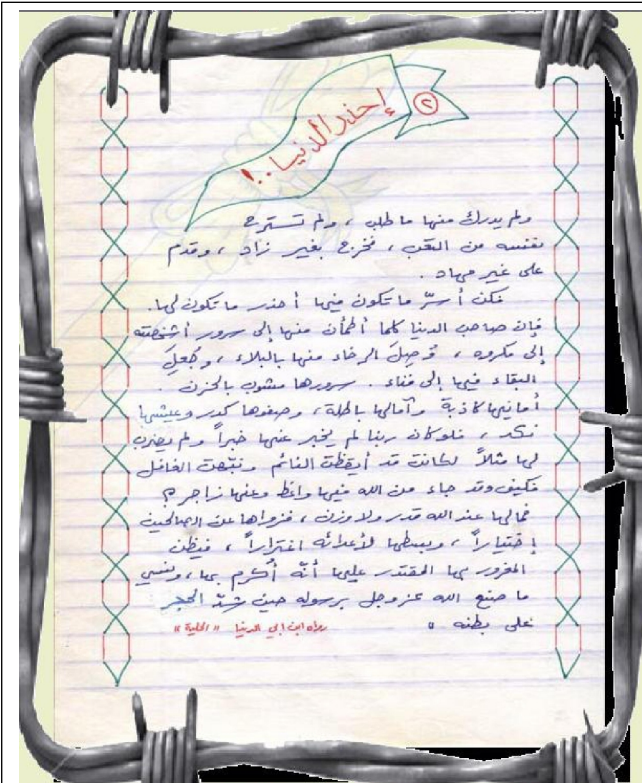 ٢
إحذر الدنيا..!
ولم يدرك منها ما طلب ، ولم تسترح
نفسه من التعب ، فخرج بغير زاد ، وقدم
على غير مهاد .
فكن أسرّ ما تكون فيها أحذر ما تكون لها .
فإن صاحب الدنيا كلما أطمأن منها إلى سرور أشخصته
إلى مكروه ، وُصِلَ الرخاء منها بالبلاء ، وجُعِلَ
البقاء فيها إلى فناء . سرورها مشوب بالحزن .
أمانيها كاذبة وآمالها باطلة ، وصفوها كدر وعيشها
نكد ، فلو كان ربنا لم يخبر عنها خبراً ولم يضرب
لها مثلاً لكانت قد أيقظت النائم ونبّهت الغافل
فكيف وقد جاء من الله فيها واعظ وعنها زاجر ؟
فما لها عند الله قدر ولا وزن ، فزواها عن الصالحين
إختياراً ، وبسطها لأعدائه اغتراراً ، فيظن
المغرور بها المقتدر عليها أنّه أُكرم بها ، ونسي
ما صنع الله عز وجل برسوله حين شدّ الحجر
على بطنه .
رواه ابن أبي الدنيا "الحلية"